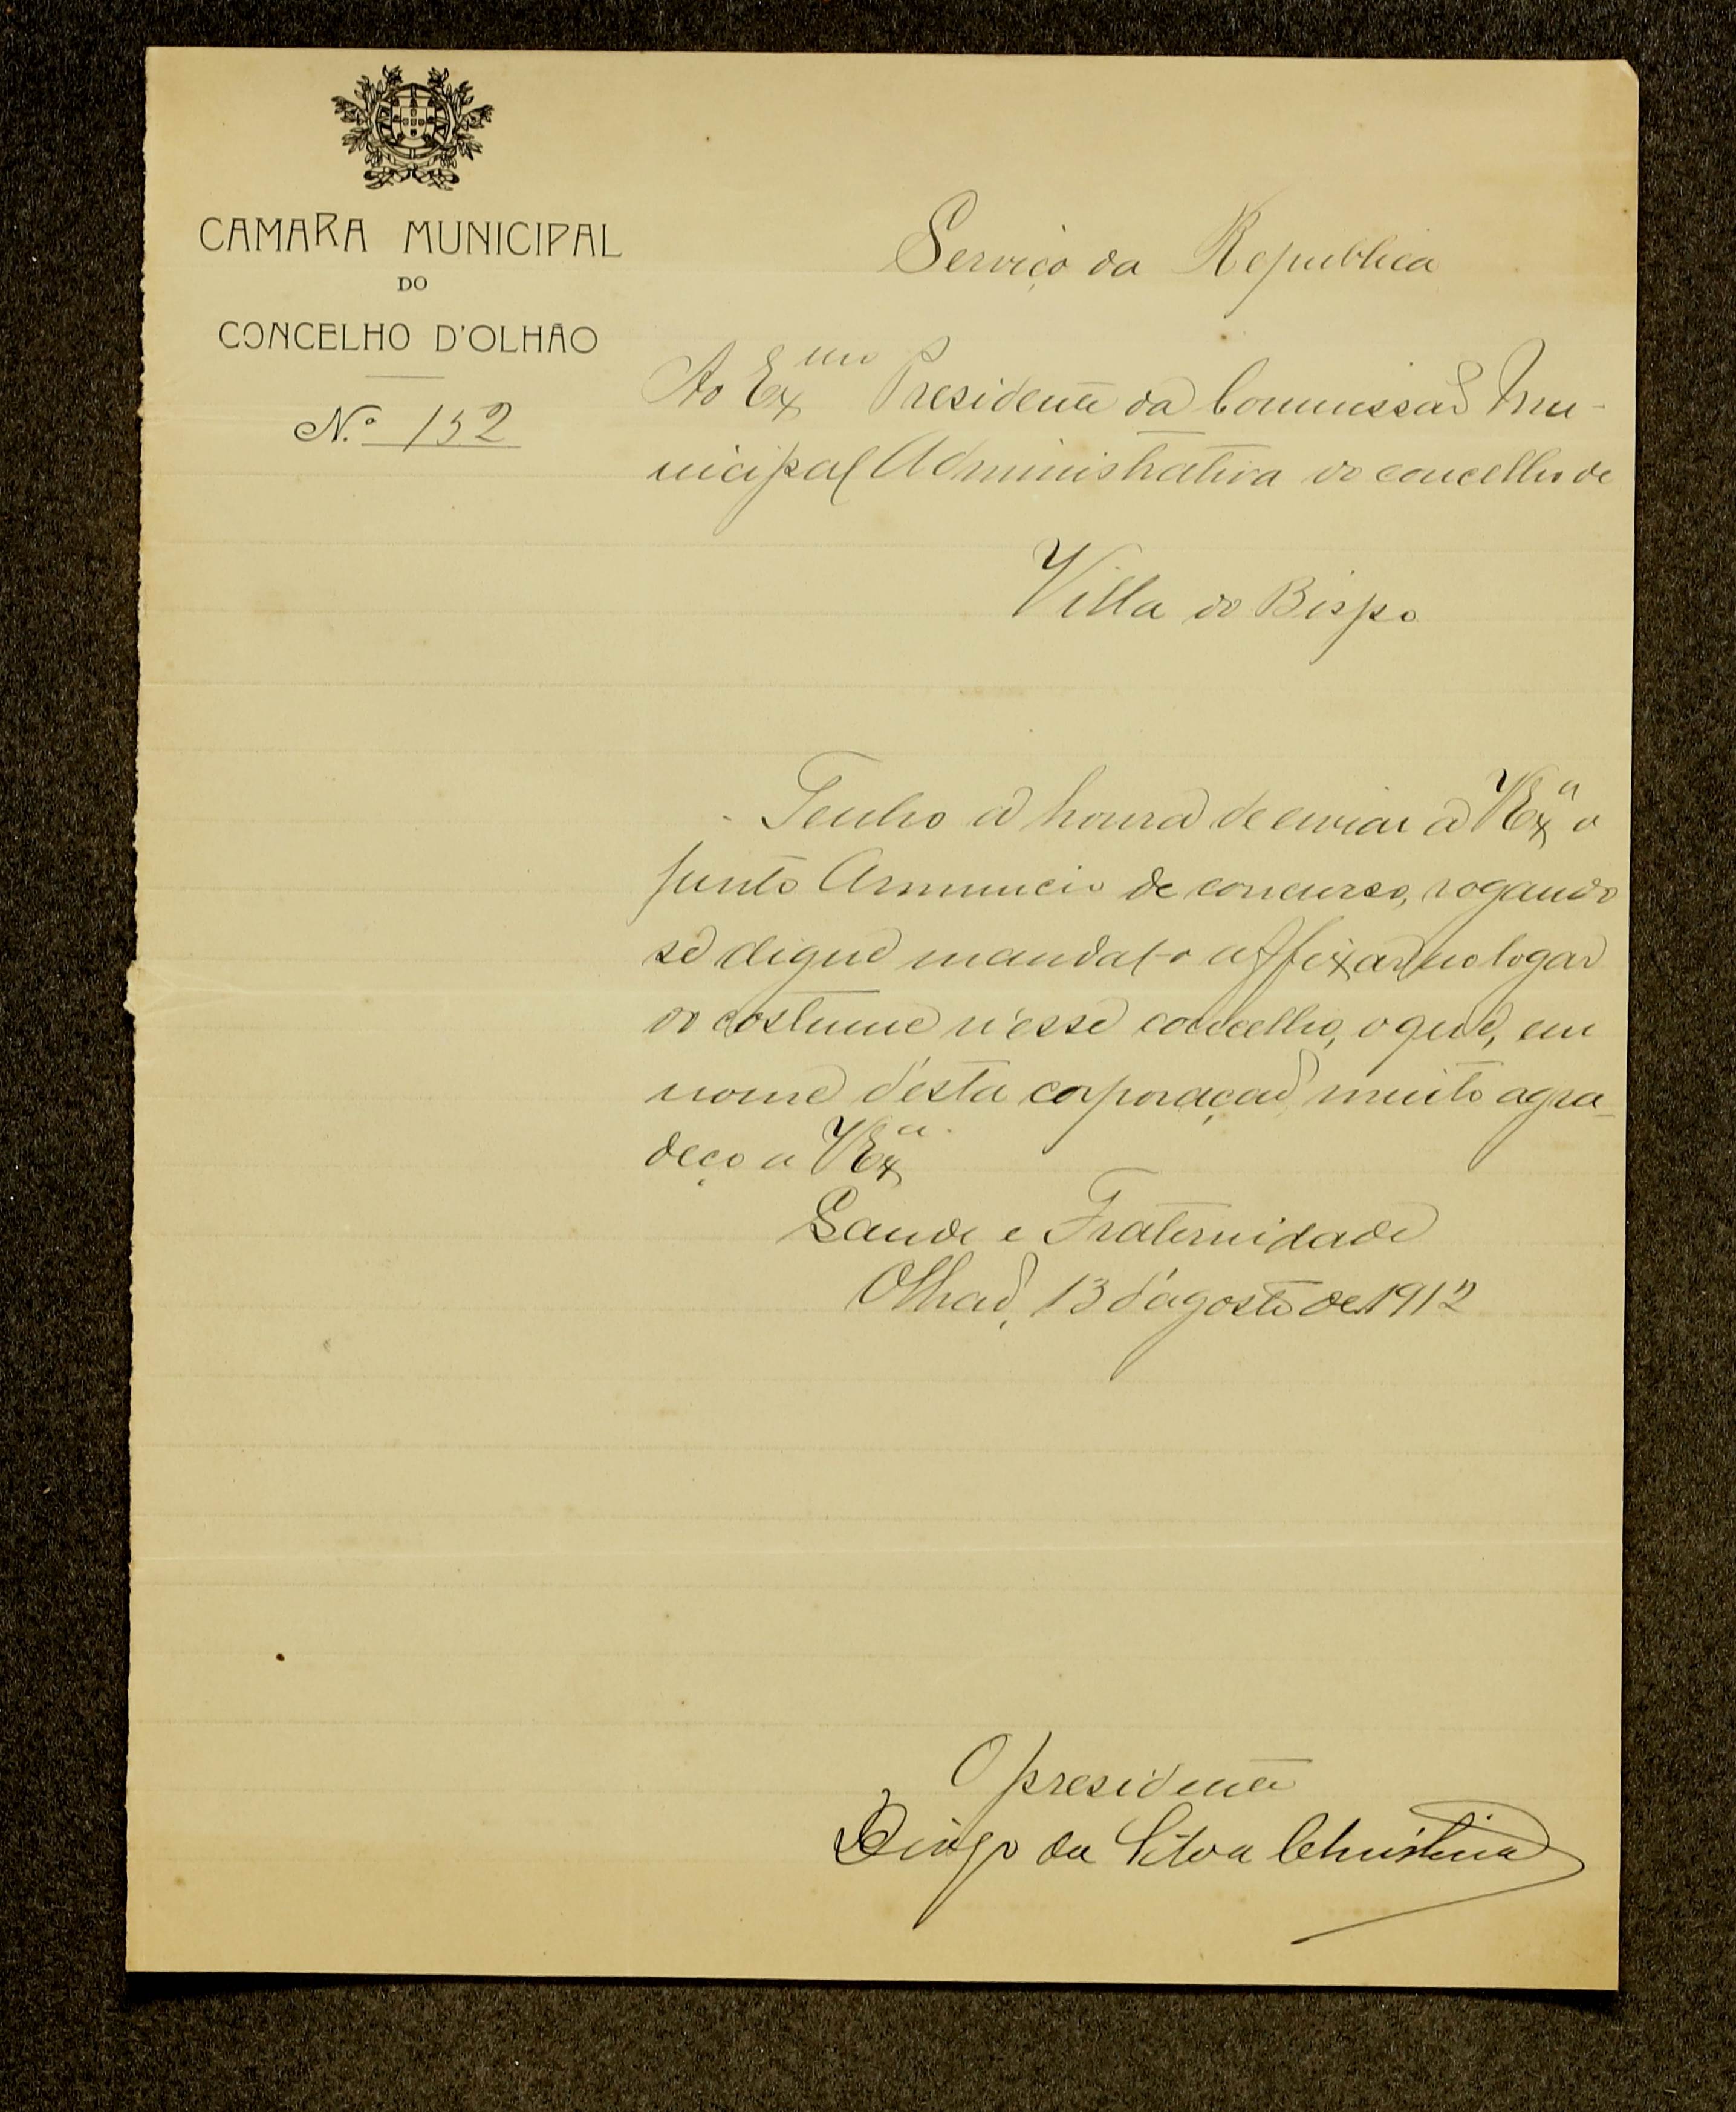 CAMARA MUNICIPAL
DO
CONCELHO D'OLHÃO
N.º 152
Serviço da Republica
Ao Exmo Presidente da Commissão Mu-
nicipal Administrativa do concelho de
Villa do Bispo
Tenho a honra de enviar a V Exa o
junto Annuncio de concurso, rogando
se digne mandal-o affixar no logar
do costume n'esse concelho, o que, em
nome d'esta corporação muito agra-
deço a V Exa.
Saude e Fraternidade
Olhão, 13 d'agosto de 1912
O presidente
Diogo da Silva Christina